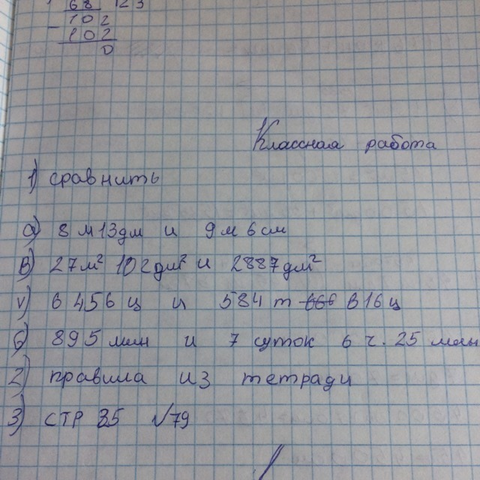 68 123
- 102
102
0
Классная работа
1) сравнить
а) 8 м 13 дм и 9 м 6 см
в) 27 м² 102 дм² и 2887 дм²
v) 6 456 ц и 584 т 816 ц
б) 895 мин и 7 суток 6 ч. 25 мин
2) правила из тетради
3) СТР 35 №79